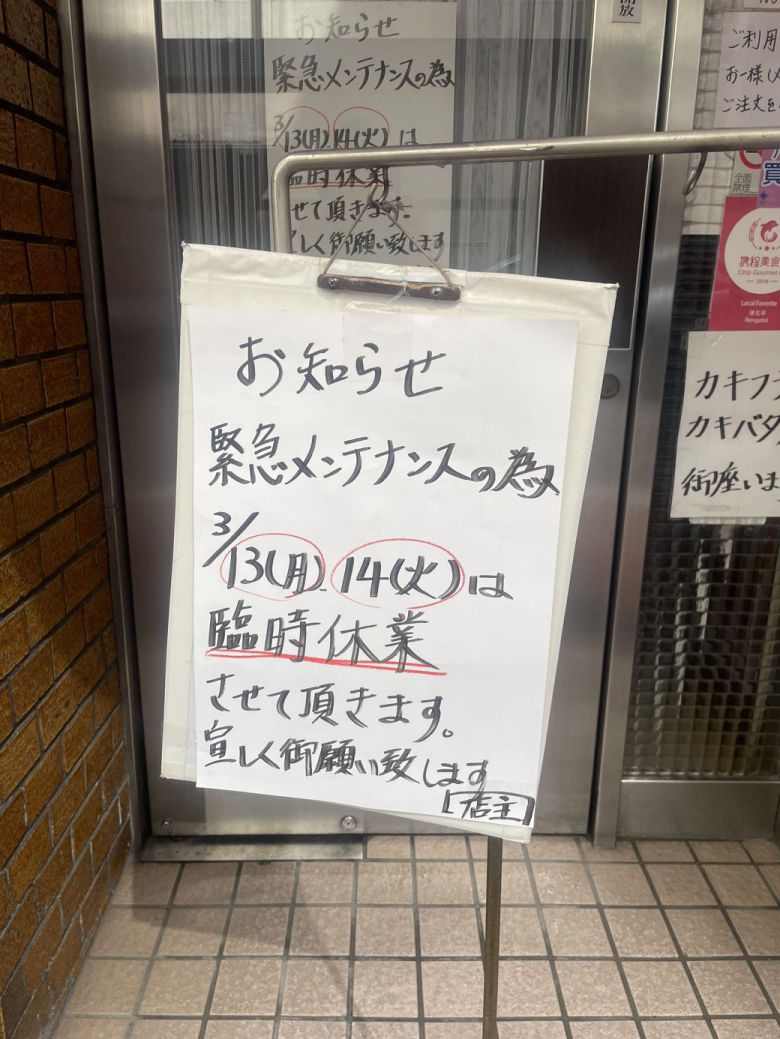 お知らせ
緊急メンテナンスの為
3/13(月)、14(火)は
臨時休業
させて頂きます。
宜しく御願い致します
[店主]
お知らせ
緊急メンテナンスの為
3/13(月)、14(火)は
臨時休業
せて頂きます。
しく御願い致します
開放
ご利用
お一様
ご注文を
全面
禁煙
買
携程美食
Ctrip Gourmet
2018
Local Favorite
Rengatei
カキフ
カキバタ
御座いま